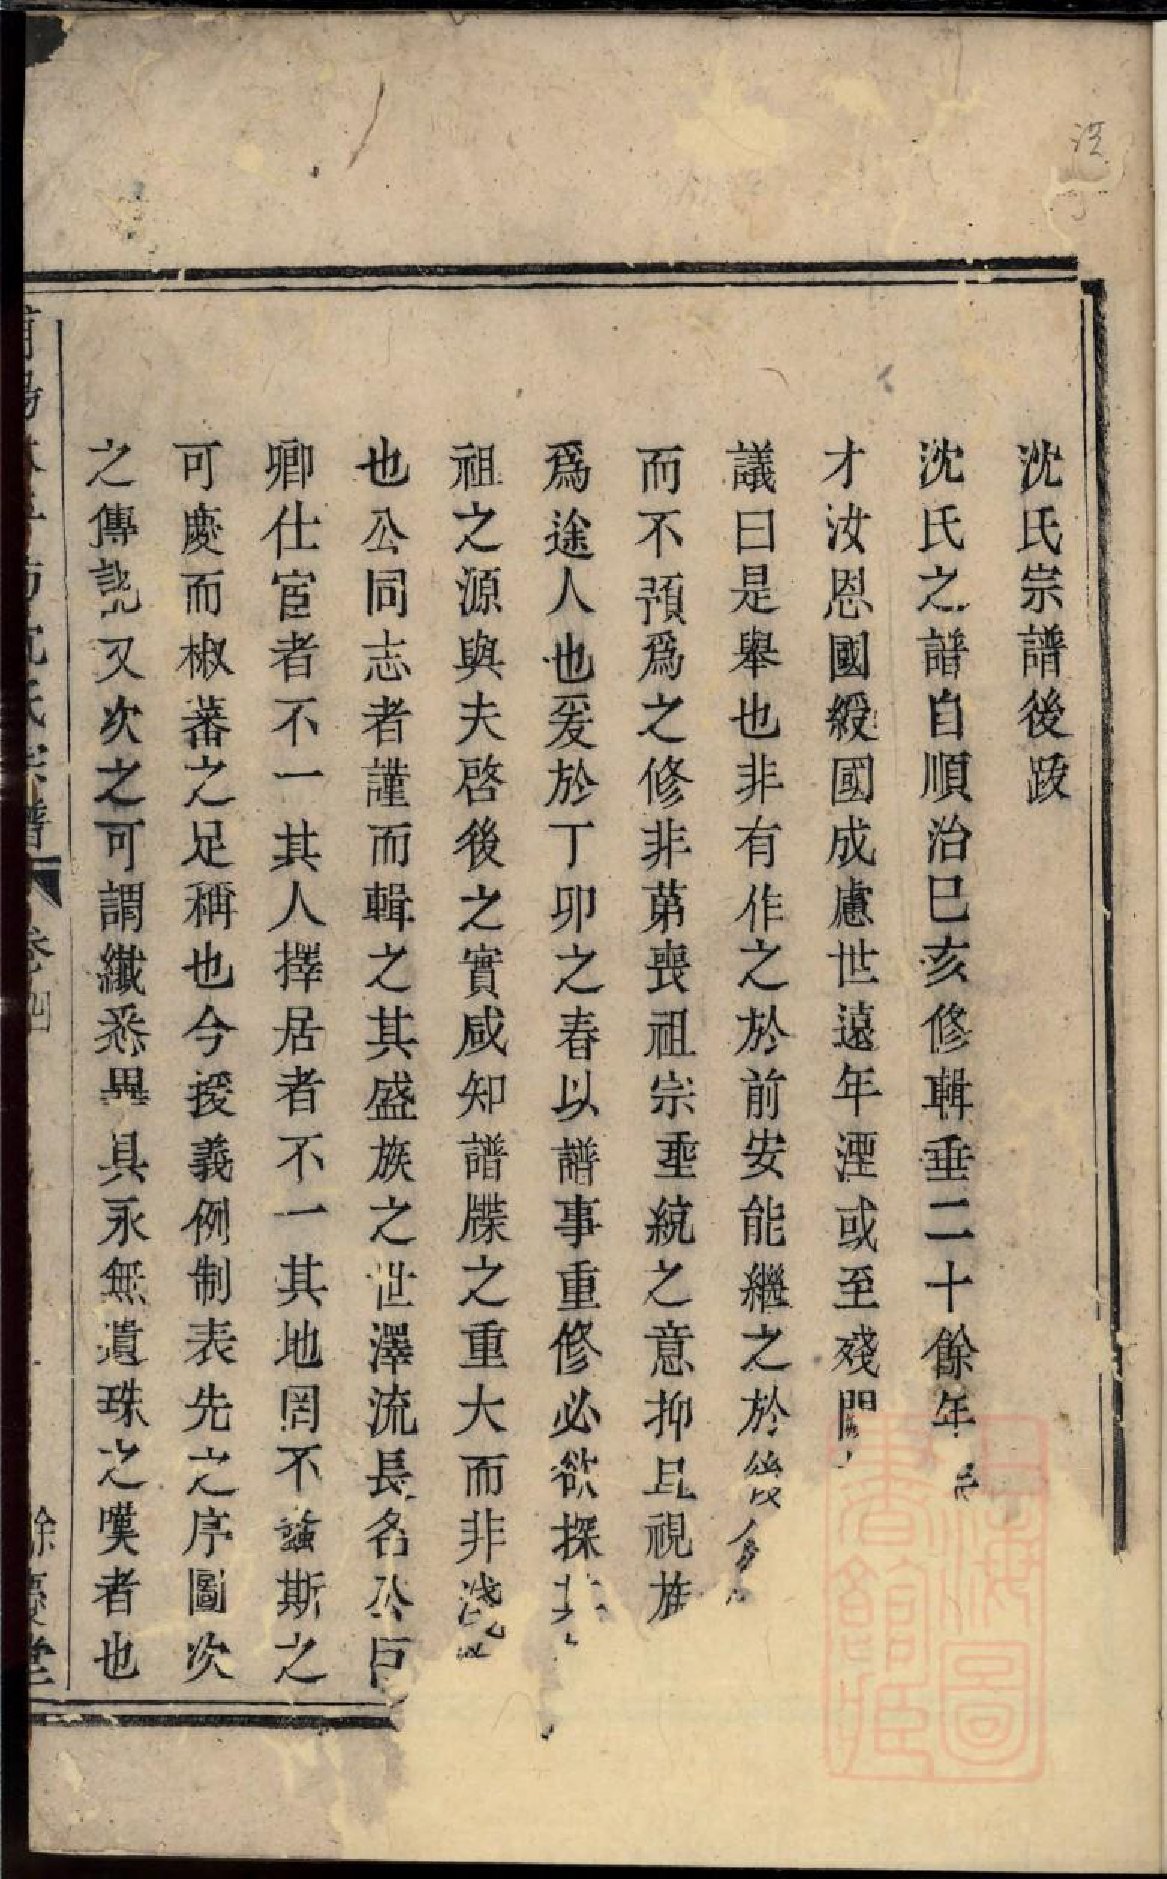 沈氏宗譜後跋
沈氏之譜自順治巳亥修輯垂二十餘年
才汝恩國綬國成慮世遠年湮或至殘闕
議曰是舉也非有作之於前安能繼之於後
而不預爲之修非第喪祖宗垂統之意抑且視族
爲途人也爰於丁卯之春以譜事重修必欲探其
祖之源與夫啓後之實咸知譜牒之重大而非淺
也公同志者謹而輯之其盛族之世澤流長名公巨
卿仕宦者不一其人擇居者不一其地罔不螽斯之
可慶而椒蕃之足稱也今援義例制表先之序圖次
之傳說又次之可謂纖悉畢具永無遺珠之嘆者也
沈氏宗譜
卷四
餘慶堂
上海圖書館藏